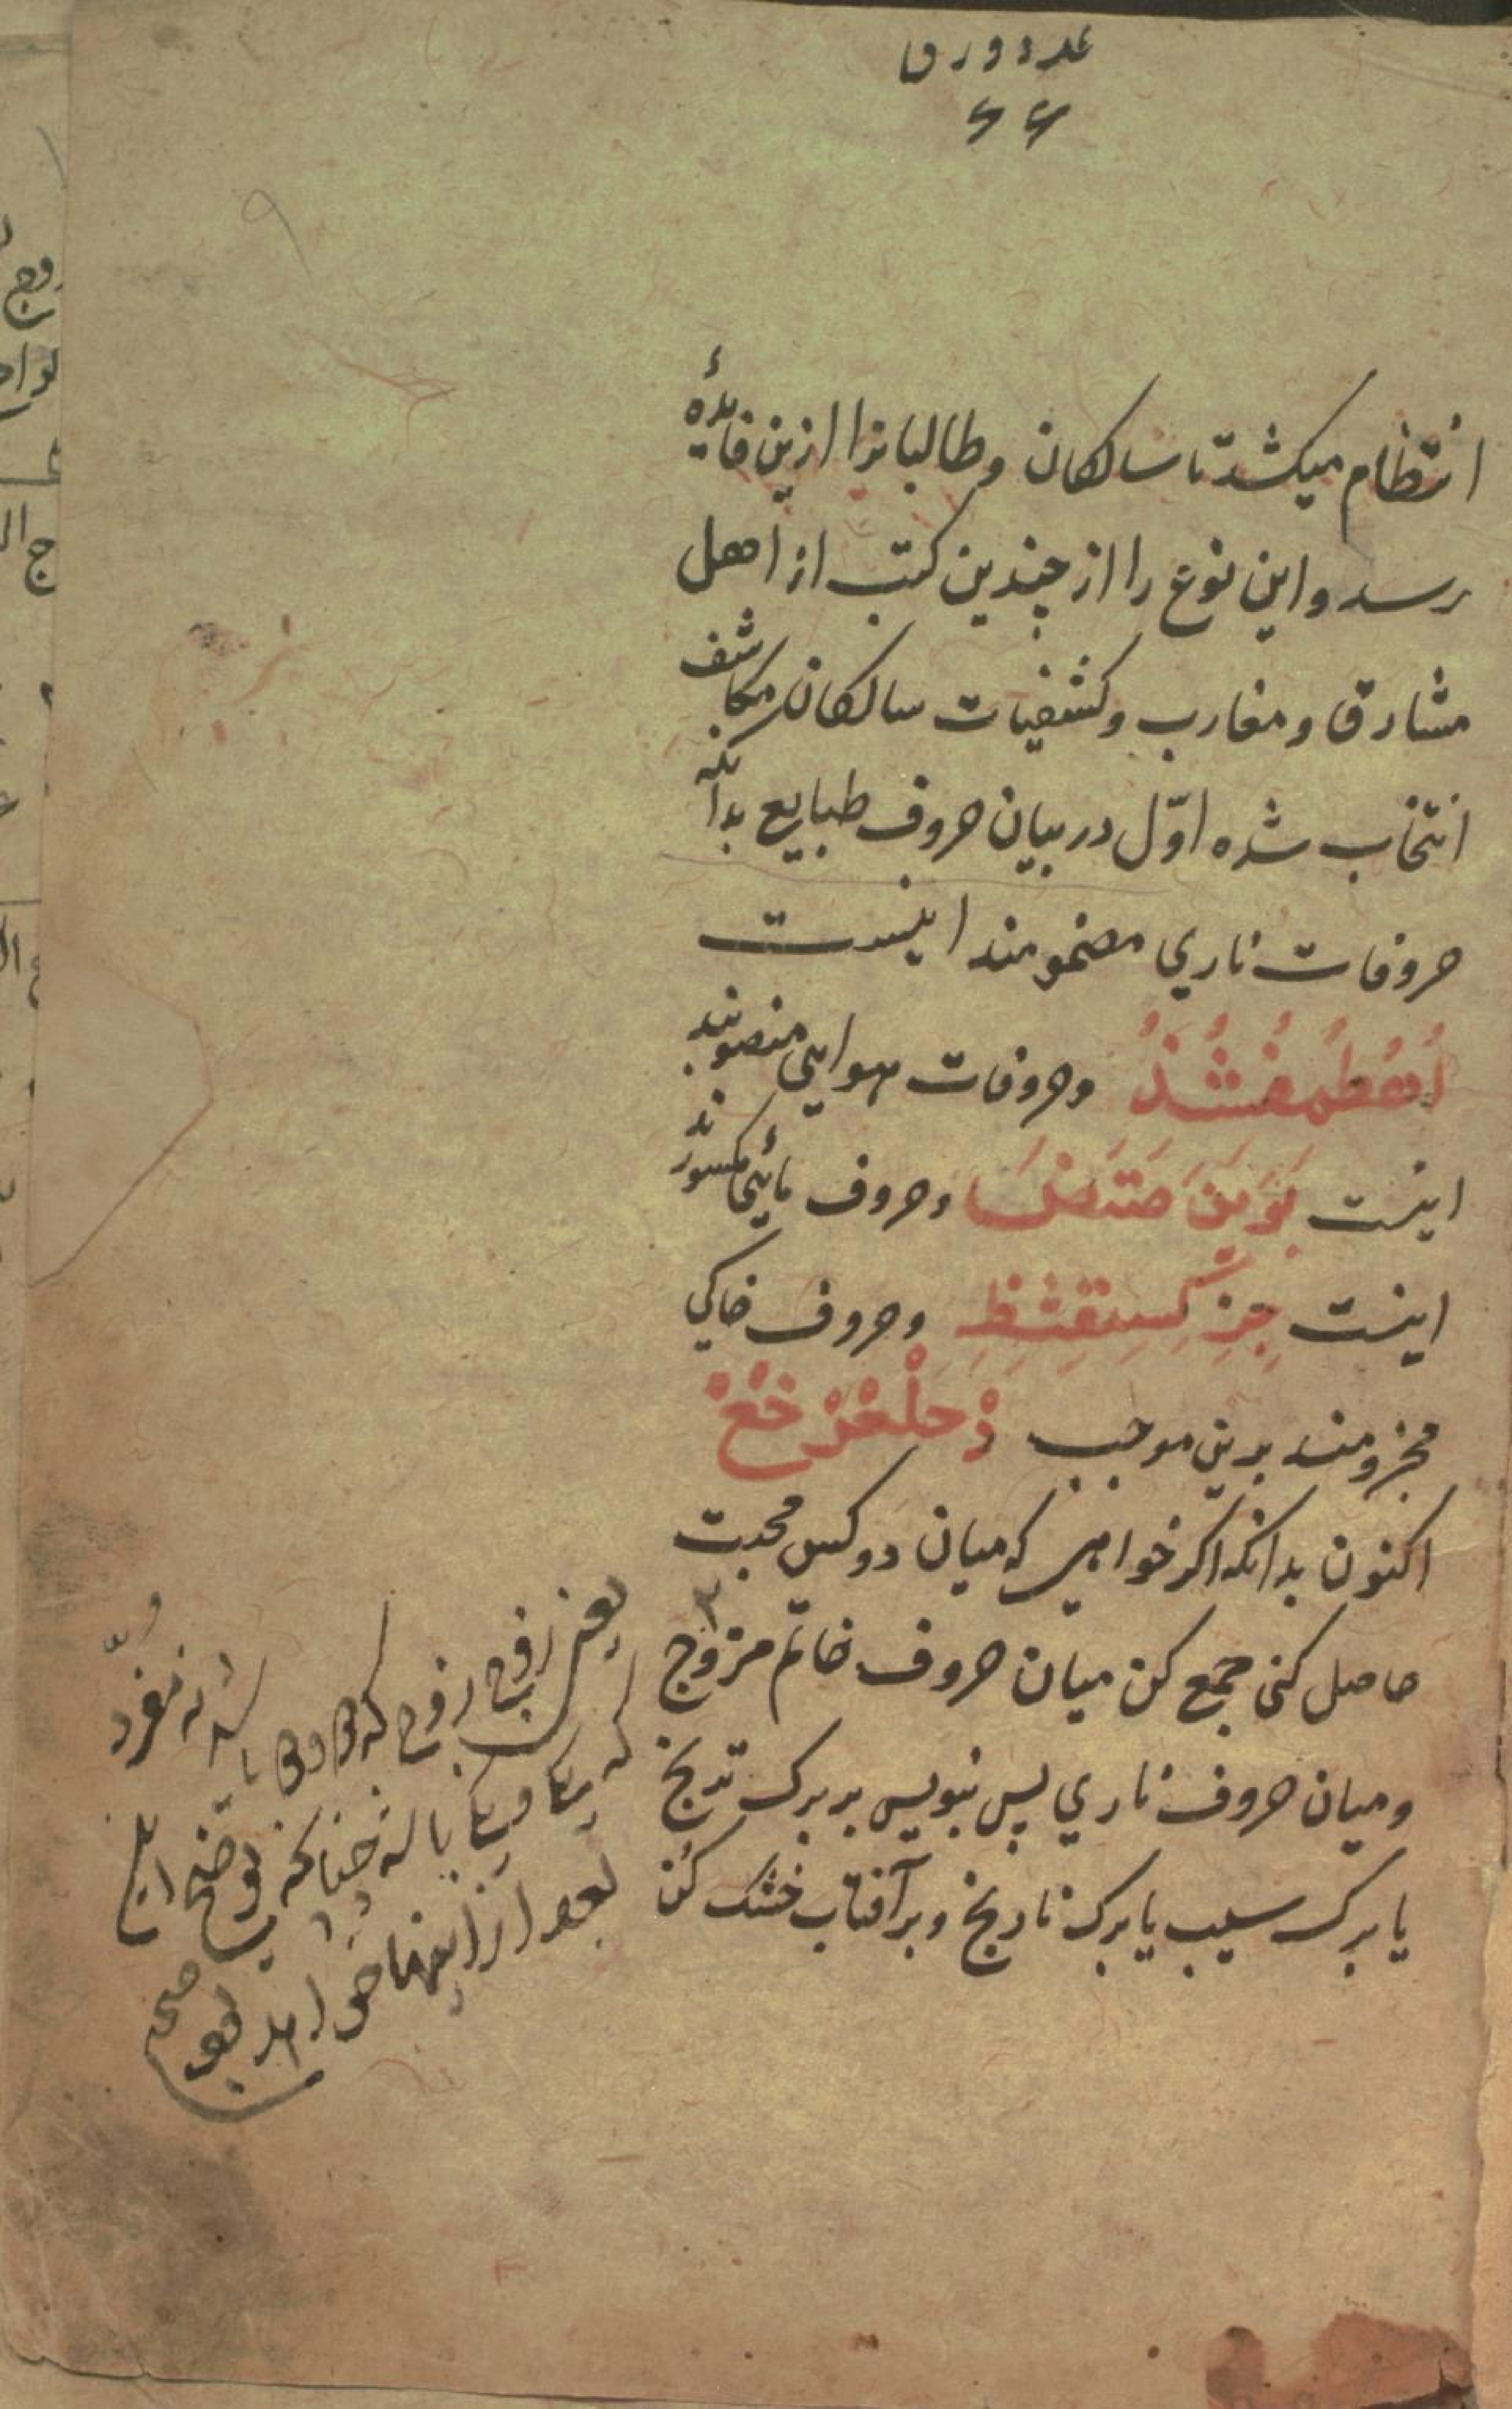 عدد ورق
۶۶
انتظام میکشد تا سالکان و طالبانرا ازین فائدهٔ
رسد و این نوع را از چندین کتب از اهل
مشارق و مغارب و کشفیات سالکان مکاشف
انتخاب شده اوّل در بیان حروف طبایع بدانکه
حروفات ناري مضمومند اینست
اُهُطُمُفُشُذُ وحروفات هوایی منصوبند
اینست بَوَیَنَصَتَضَ وحروف مائی مکسورند
اینست جِزِکِسِقِثِظِ وحروف خاکي
مجزومند برین موجب دْحْلْعْرْخْغْ
اکنون بدانکه اگر خواهی که میان دو کس محبت
حاصل کنی جمع کن میان حروف خاتم مزوّج
و میان حروف ناري پس بنویس بر برک ترنج
یا برک سیب یا برک نارنج و بر آفتاب خشک کن
یعنی زوج زوج که
که یکا و یکا یا له چنانکه توضیح
بعد از اینها خواهد